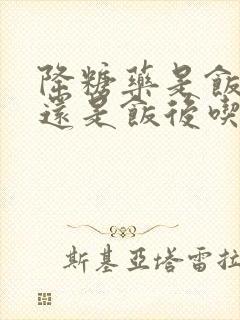 降糖藥是飯
還是飯後喫
斯基亞塔雷拉